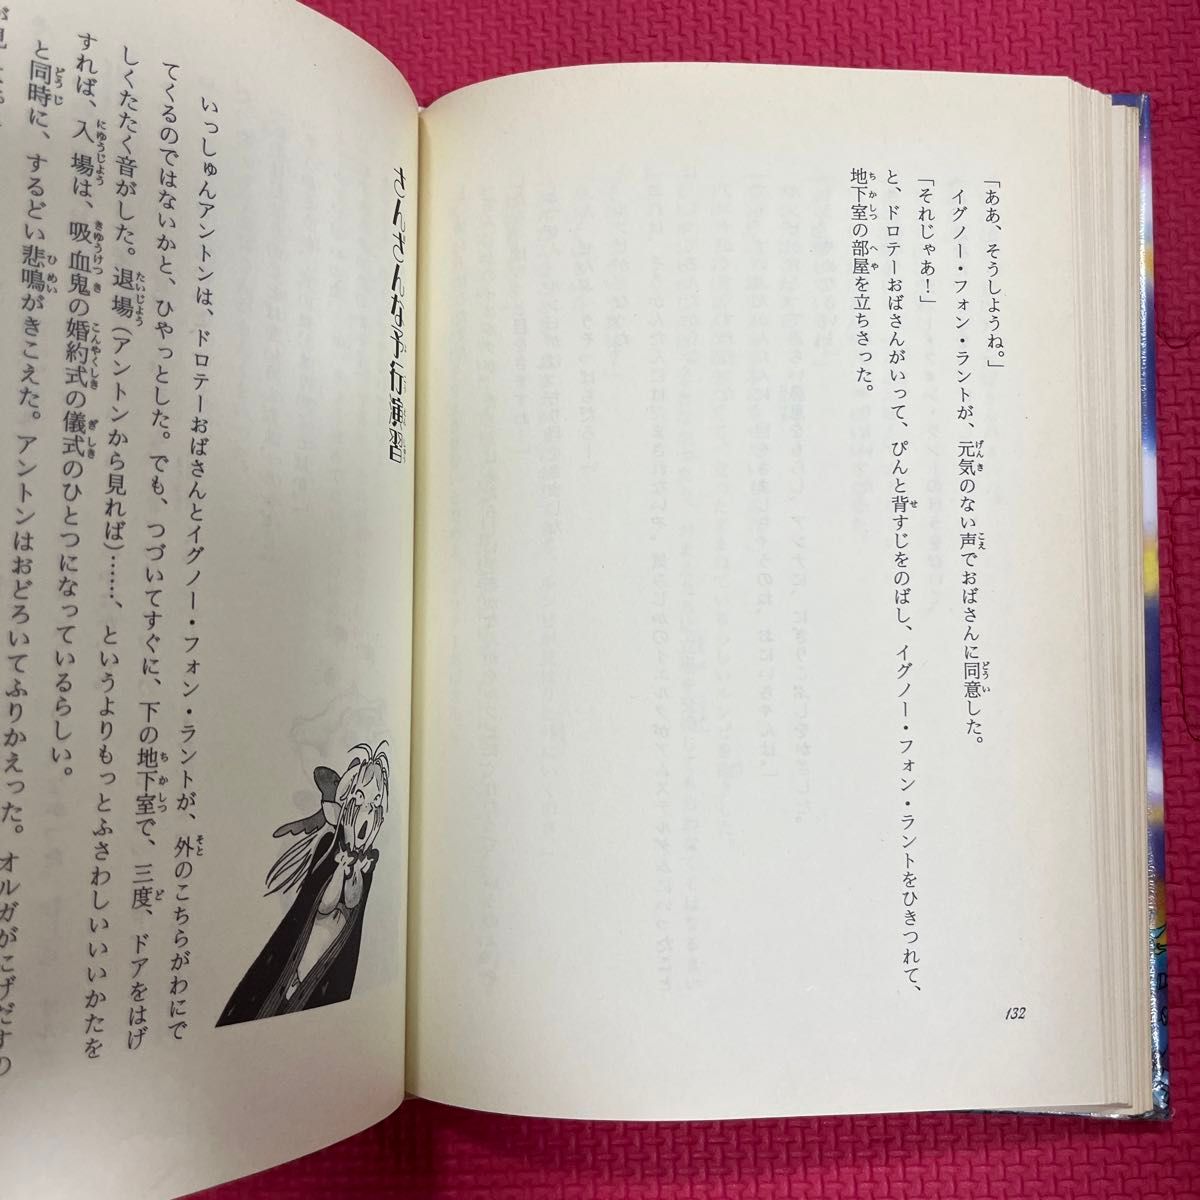 「ああ、そうしようね。」
イグノー・フォン・ラントが、元気のない声でおばさんに同意した。
「それじゃあ！」
と、ドロテーおばさんがいって、ぴんと背すじをのばし、イグノー・フォン・ラントをひきつれて、
地下室の部屋を立ちさった。
132
さんざんな予行演習
いっしゅんアントンは、ドロテーおばさんとイグノー・フォン・ラントが、外のこちらがわにで
てくるのではないかと、ひやっとした。でも、つづいてすぐに、下の地下室で、三度、ドアをはげ
しくたたく音がした。退場（アントンから見れば）……、というよりもっとふさわしいいいかたを
すれば、入場は、吸血鬼の婚約式の儀式のひとつになっているらしい。
と同時に、するどい悲鳴がきこえた。アントンはおどろいてふりかえった。オルガがこげだすの